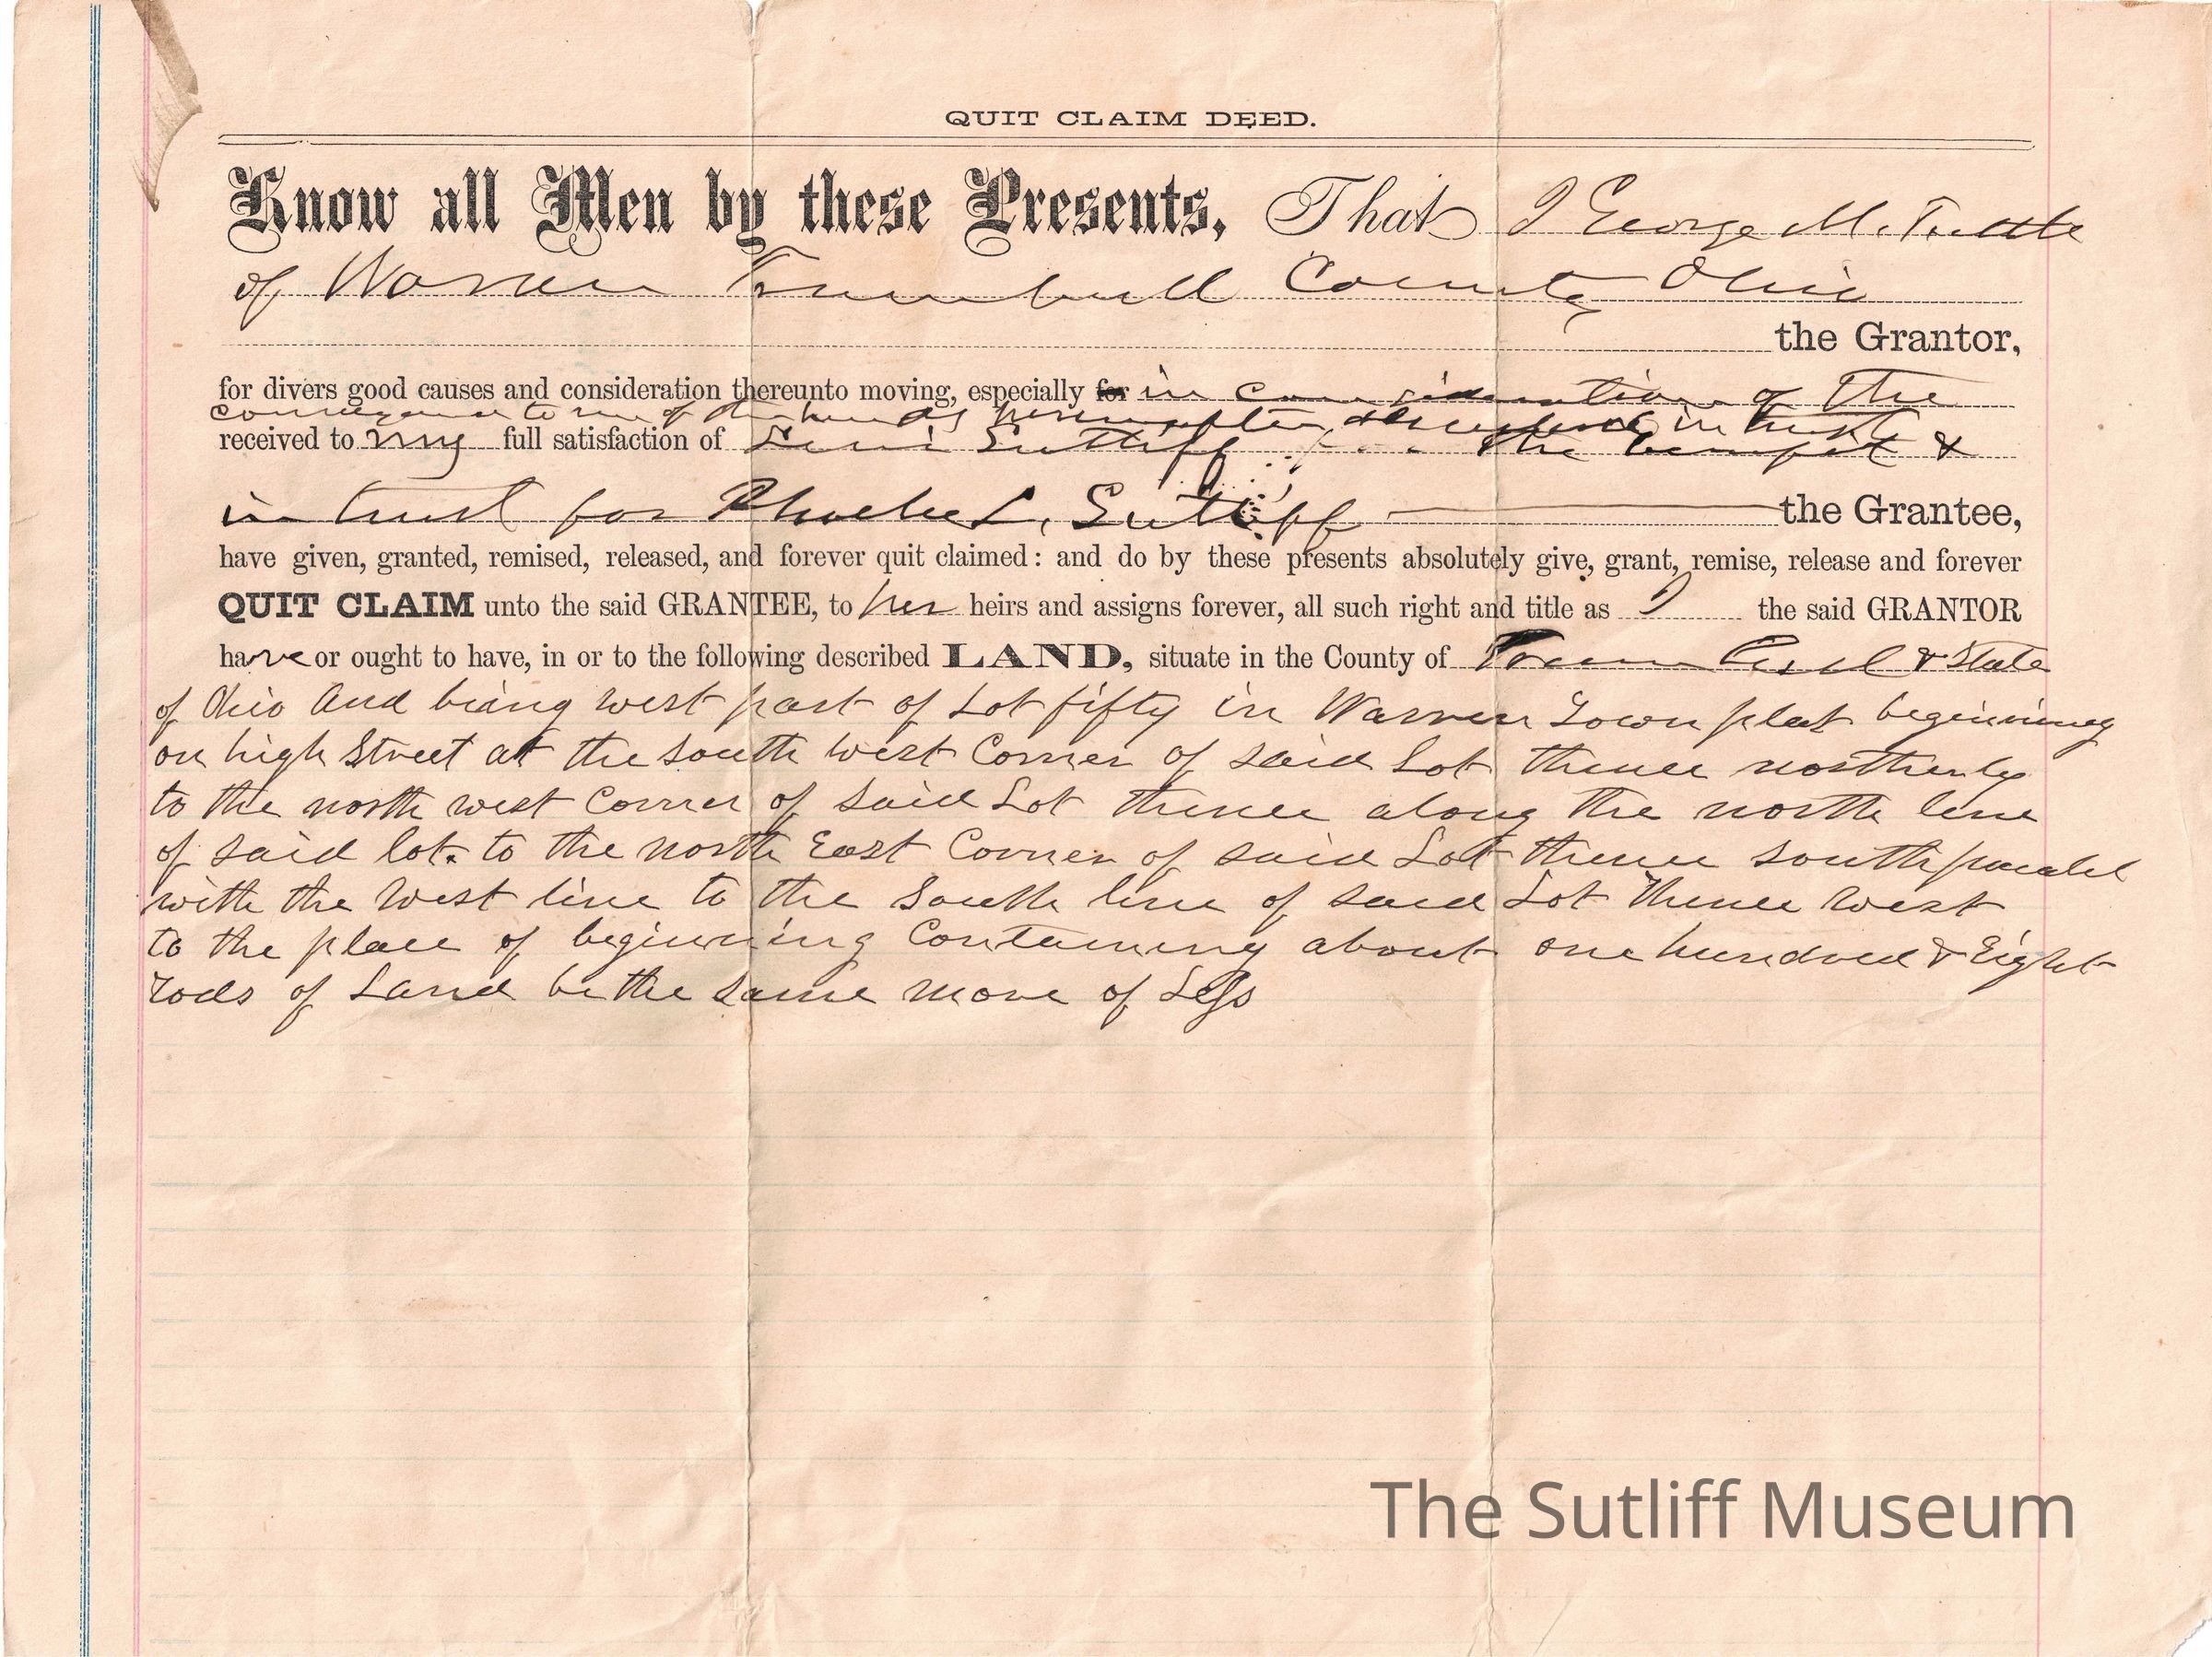 QUIT CLAIM DEED.
Know all Men by these Presents, That I George M. Tuttle
of Warren Trumbull County Ohio
the Grantor,
for divers good causes and consideration thereunto moving, especially for in consideration of the
conveyance to me of the lands hereinafter described in trust
received to my full satisfaction of Levi Sutliff for the benefit &
in trust for Phoebe L. Sutliff the Grantee,
have given, granted, remised, released, and forever quit claimed: and do by these presents absolutely give, grant, remise, release and forever
QUIT CLAIM unto the said GRANTEE, to her heirs and assigns forever, all such right and title as I the said GRANTOR
have or ought to have, in or to the following described LAND, situate in the County of Trumbull & State
of Ohio And being west part of Lot fifty in Warren Town plat beginning
on high Street at the south west Corner of said Lot thence northerly
to the north west Corner of said Lot thence along the north line
of said lot. to the north East Corner of said Lot thence south paralel
with the West line to the South line of said Lot thence West
to the place of beginning Containing about one hundred & Eight
rods of Land be the same more of Less
The Sutliff Museum